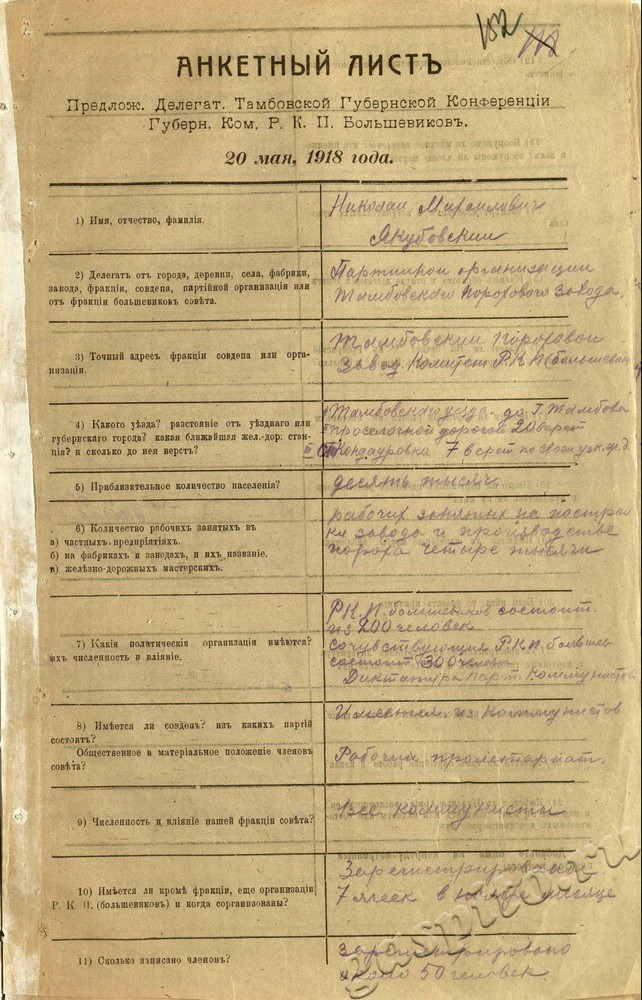 182
АНКЕТНЫЙ ЛИСТЪ
Предлож. Делегат. Тамбовской Губернской Конференціи
Губерн. Ком. Р. К. П. Большевиковъ.
20 мая, 1918 года.
1) Имя, отчество, фамилія.
Николай Михайлович
Якубовский
2) Делегатъ отъ города, деревни, села, фабрики,
завода, фракціи, совдепа, партійной организаціи или
отъ фракціи большевиковъ совѣта.
Партийной организации
Тамбовского Порохового завода.
3) Точный адресъ фракціи совдепа или орга-
низаціи.
Тамбовский Пороховой
Завод. Комитет Р.К.П (большевиков
4) Какого уѣзда? разстояніе отъ уѣзднаго или
губернскаго города? какая ближайшая жел.-дор. стан-
ція? и сколько до нея верстъ?
I Тамбовского уезда. до Г. Тамбова
II проселочной дорогой 20 верст
III Кондауровка 7 верст по своей узк. ж. д.
5) Приблизительное количество населенія?
десять тысяч
6) Количество рабочихъ занятыхъ въ
а) частныхъ предпріятіяхъ.
б) на фабрикахъ и заводахъ, и ихъ названіе.
в) желѣзно-дорожныхъ мастерскихъ.
рабочих занятых на построй
ки завода и производстве
пороха четыре тысячи
7) Какія политическія организаціи имѣются?
ихъ численность и вліяніе.
Р.К.П. большевиков состоит.
из 200 человек
сочувствующих Р.К.П. большев
состоит 300 человек
Диктатура парт. Коммунистов
8) Имѣется ли совдепъ? изъ какихъ партій
состоитъ?
Имеется из Коммунистов
Общественное и матеріальное положеніе членовъ
совѣта?
Рабочих пролетариат.
9) Численность и вліяніе нашей фракціи совѣта?
Все коммунисты
10) Имѣется ли кромѣ фракціи, еще организація
Р. К. П. (большевиковъ) и когда сорганизованы?
Зарегистрировано
7 ячеек в месяце
11) Сколько записано членовъ?
зарегистрировано
около 50 человек.